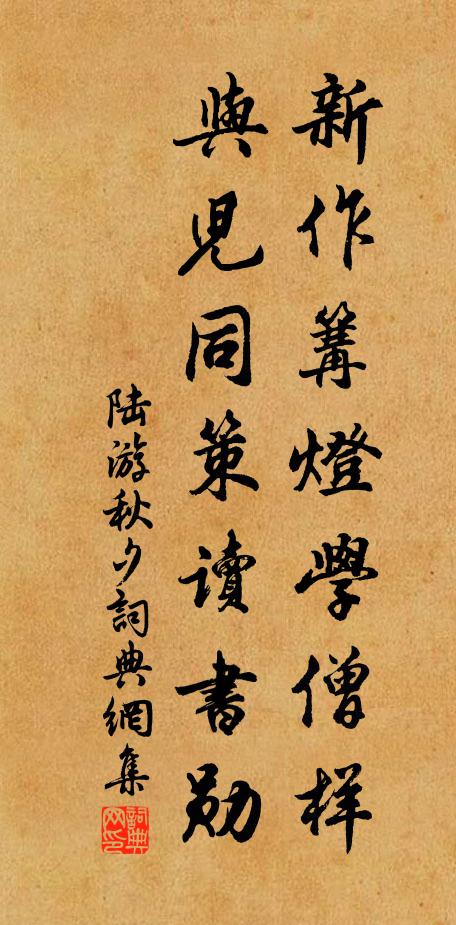 新作篝燈學僧样
與児同策讀書勋
陆游秋夕詞典網集
詞典网印